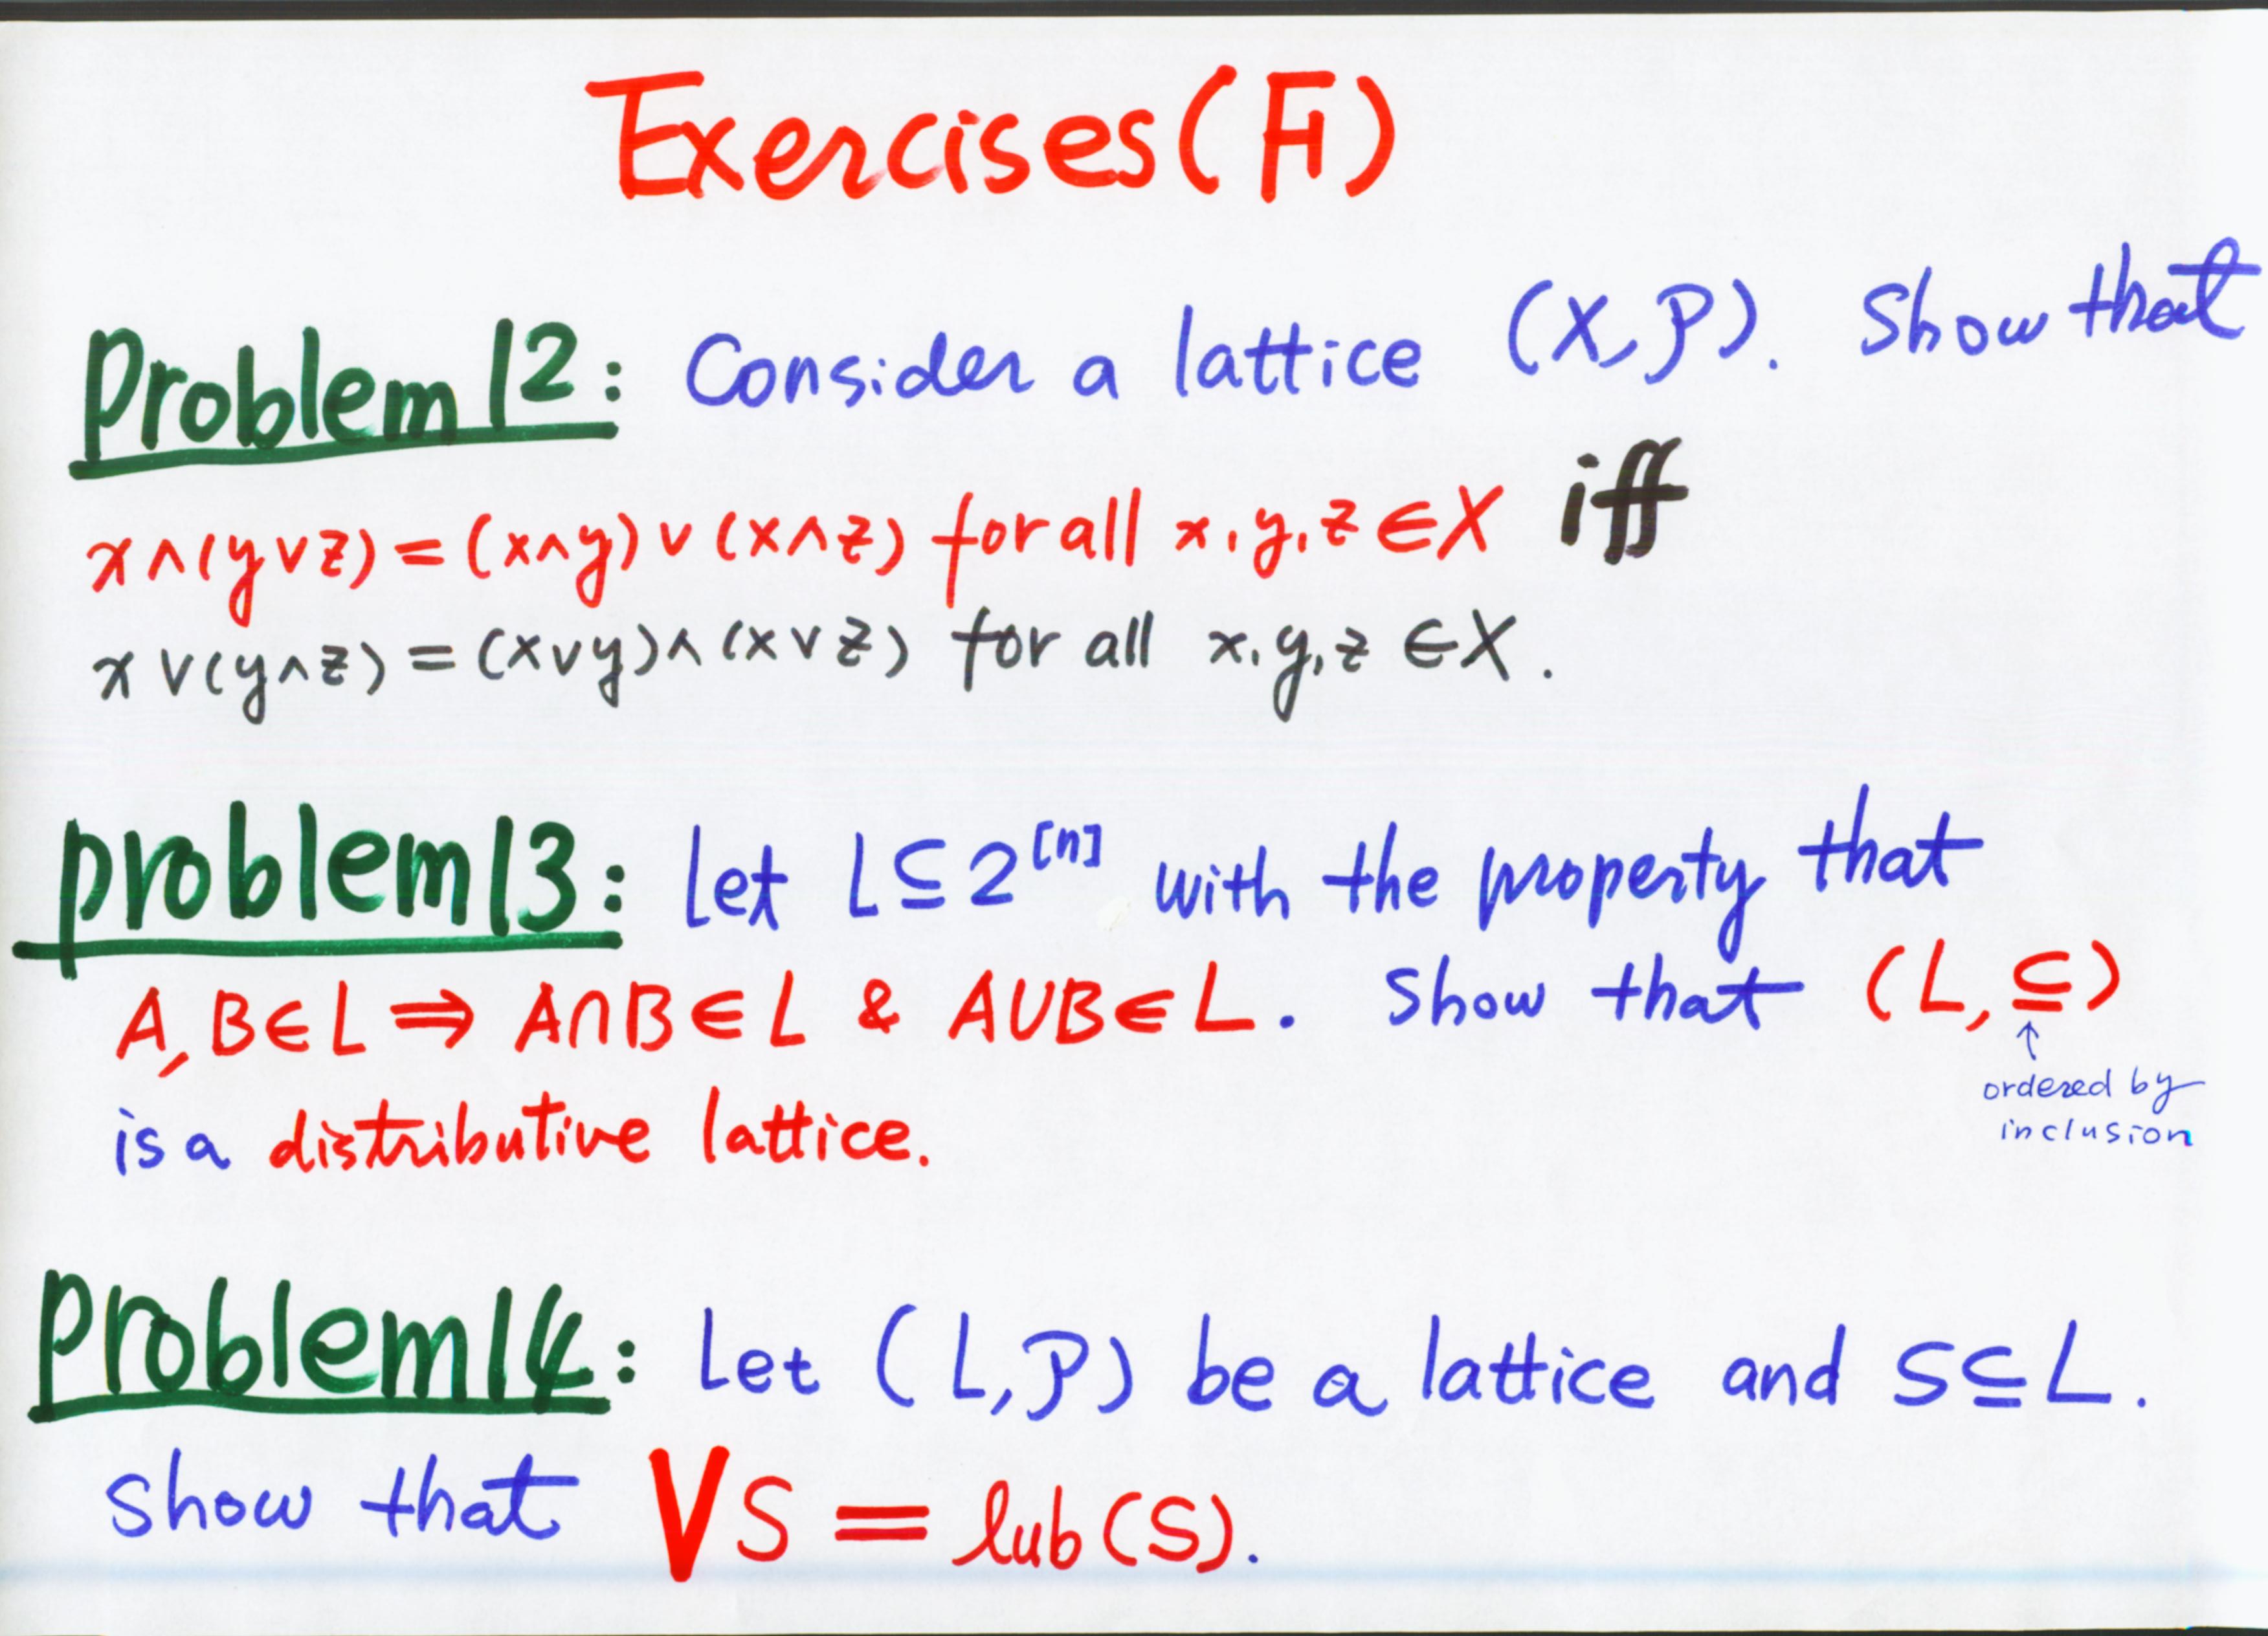 Exercises(Fi)
Problem 12: Consider a lattice (X, P). Show that
x∧(y∨z) = (x∧y)∨(x∧z) for all x,y,z ∈X iff
x∨(y∧z) = (x∨y)∧(x∨z) for all x,y,z ∈X.
problem 13: Let L⊆2^[n] with the property that
A, B∈L ⇒ A∩B∈L & A∪B∈L. Show that (L, ⊆)
↑
ordered by
inclusion
is a distributive lattice.
Problem 14: Let (L, P) be a lattice and S⊆L.
Show that ∨S = lub(S).